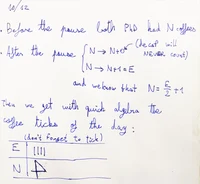 10/12
• Before the pause both PhD had N coffees
• After the pause { N → N+0* (decaf will NEVER count)
N → N+1 = E
and we know that N = E/2 + 1
Then we get with quick algebra the
coffee ticks of the day :
(don't forget to tick!)
E ||||
N